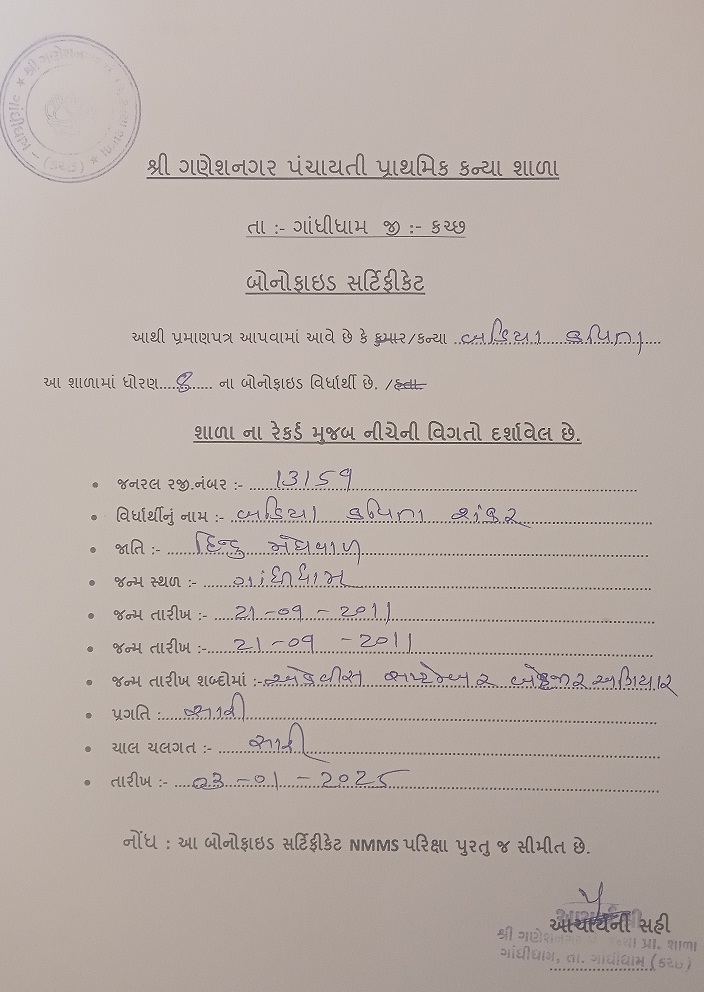 શ્રી ગણેશનગર પંચાયતી પ્રાથમિક કન્યા શાળા
તા :- ગાંધીધામ જી :- કચ્છ
બોનોફાઇડ સર્ટિફીકેટ
આથી પ્રમાણપત્ર આપવામાં આવે છે કે કુમાર/કન્યા બડિયા કવિતા
આ શાળામાં ધોરણ....8..... ના બોનોફાઇડ વિર્ધાર્થી છે. /હતા
શાળા ના રેકર્ડ મુજબ નીચેની વિગતો દર્શાવેલ છે.
• જનરલ રજી.નંબર :- 13159
• વિર્ધાર્થીનું નામ :- બડિયા કવિતા શંકર
• જાતિ :- હિન્દુ મેઘવાળ
• જન્મ સ્થળ :- ગાંધીધામ
• જન્મ તારીખ :- 21-09-2011
• જન્મ તારીખ :- 21-09-2011
• જન્મ તારીખ શબ્દોમાં :- એકવીસ સપ્ટેમ્બર બે હજાર અગિયાર
• પ્રગતિ : સારી
• ચાલ ચલગત :- સારી
• તારીખ :- 03-01-2025
નોંધ : આ બોનોફાઇડ સર્ટિફીકેટ NMMS પરિક્ષા પુરતુ જ સીમીત છે.
આચાર્યની સહી
શ્રી ગણેશનગર કન્યા પ્રા. શાળા
ગાંધીધામ, તા. ગાંધીધામ (કચ્છ)